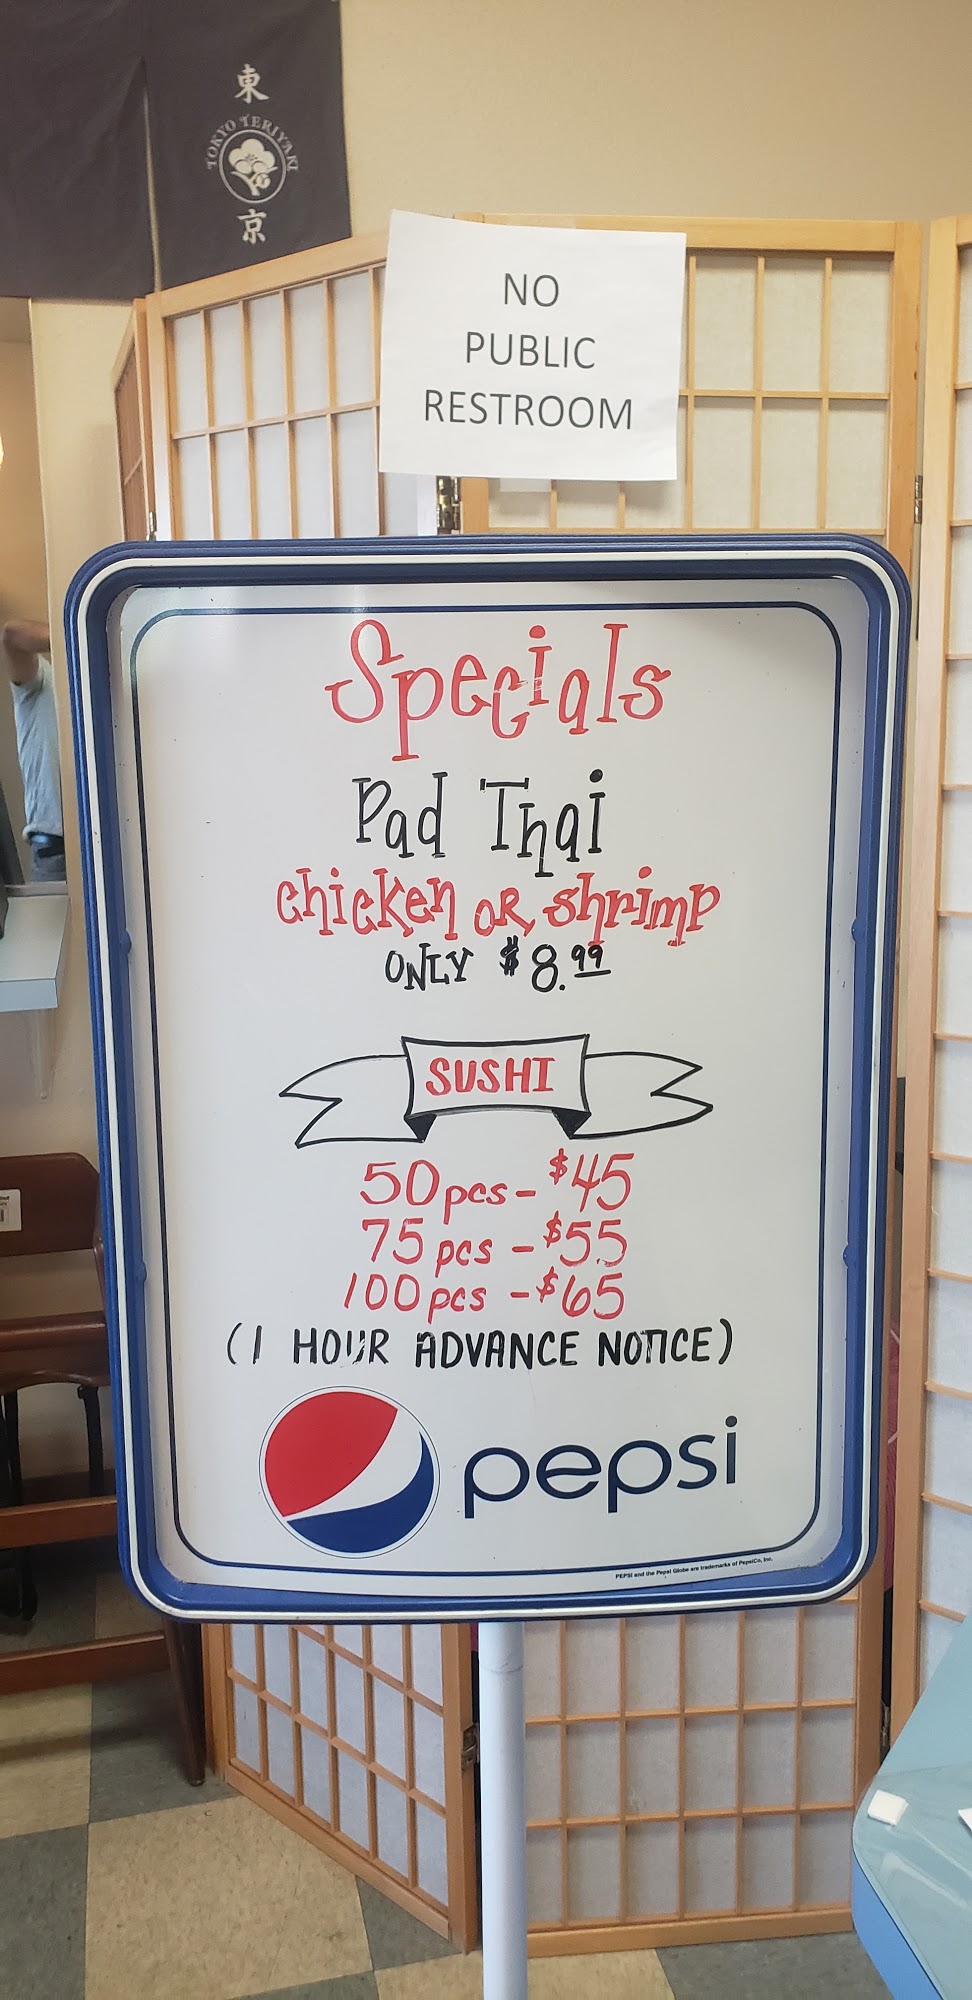 東
TOKYO TERIYAKI
京
NO
PUBLIC
RESTROOM
Specials
Pad Thai
chicken OR shrimp
ONLY $8.99
SUSHI
50pcs - $45
75pcs - $55
100pcs - $65
(1 HOUR ADVANCE NOTICE)
pepsi
PEPSI and the Pepsi Globe are trademarks of PepsiCo, Inc.